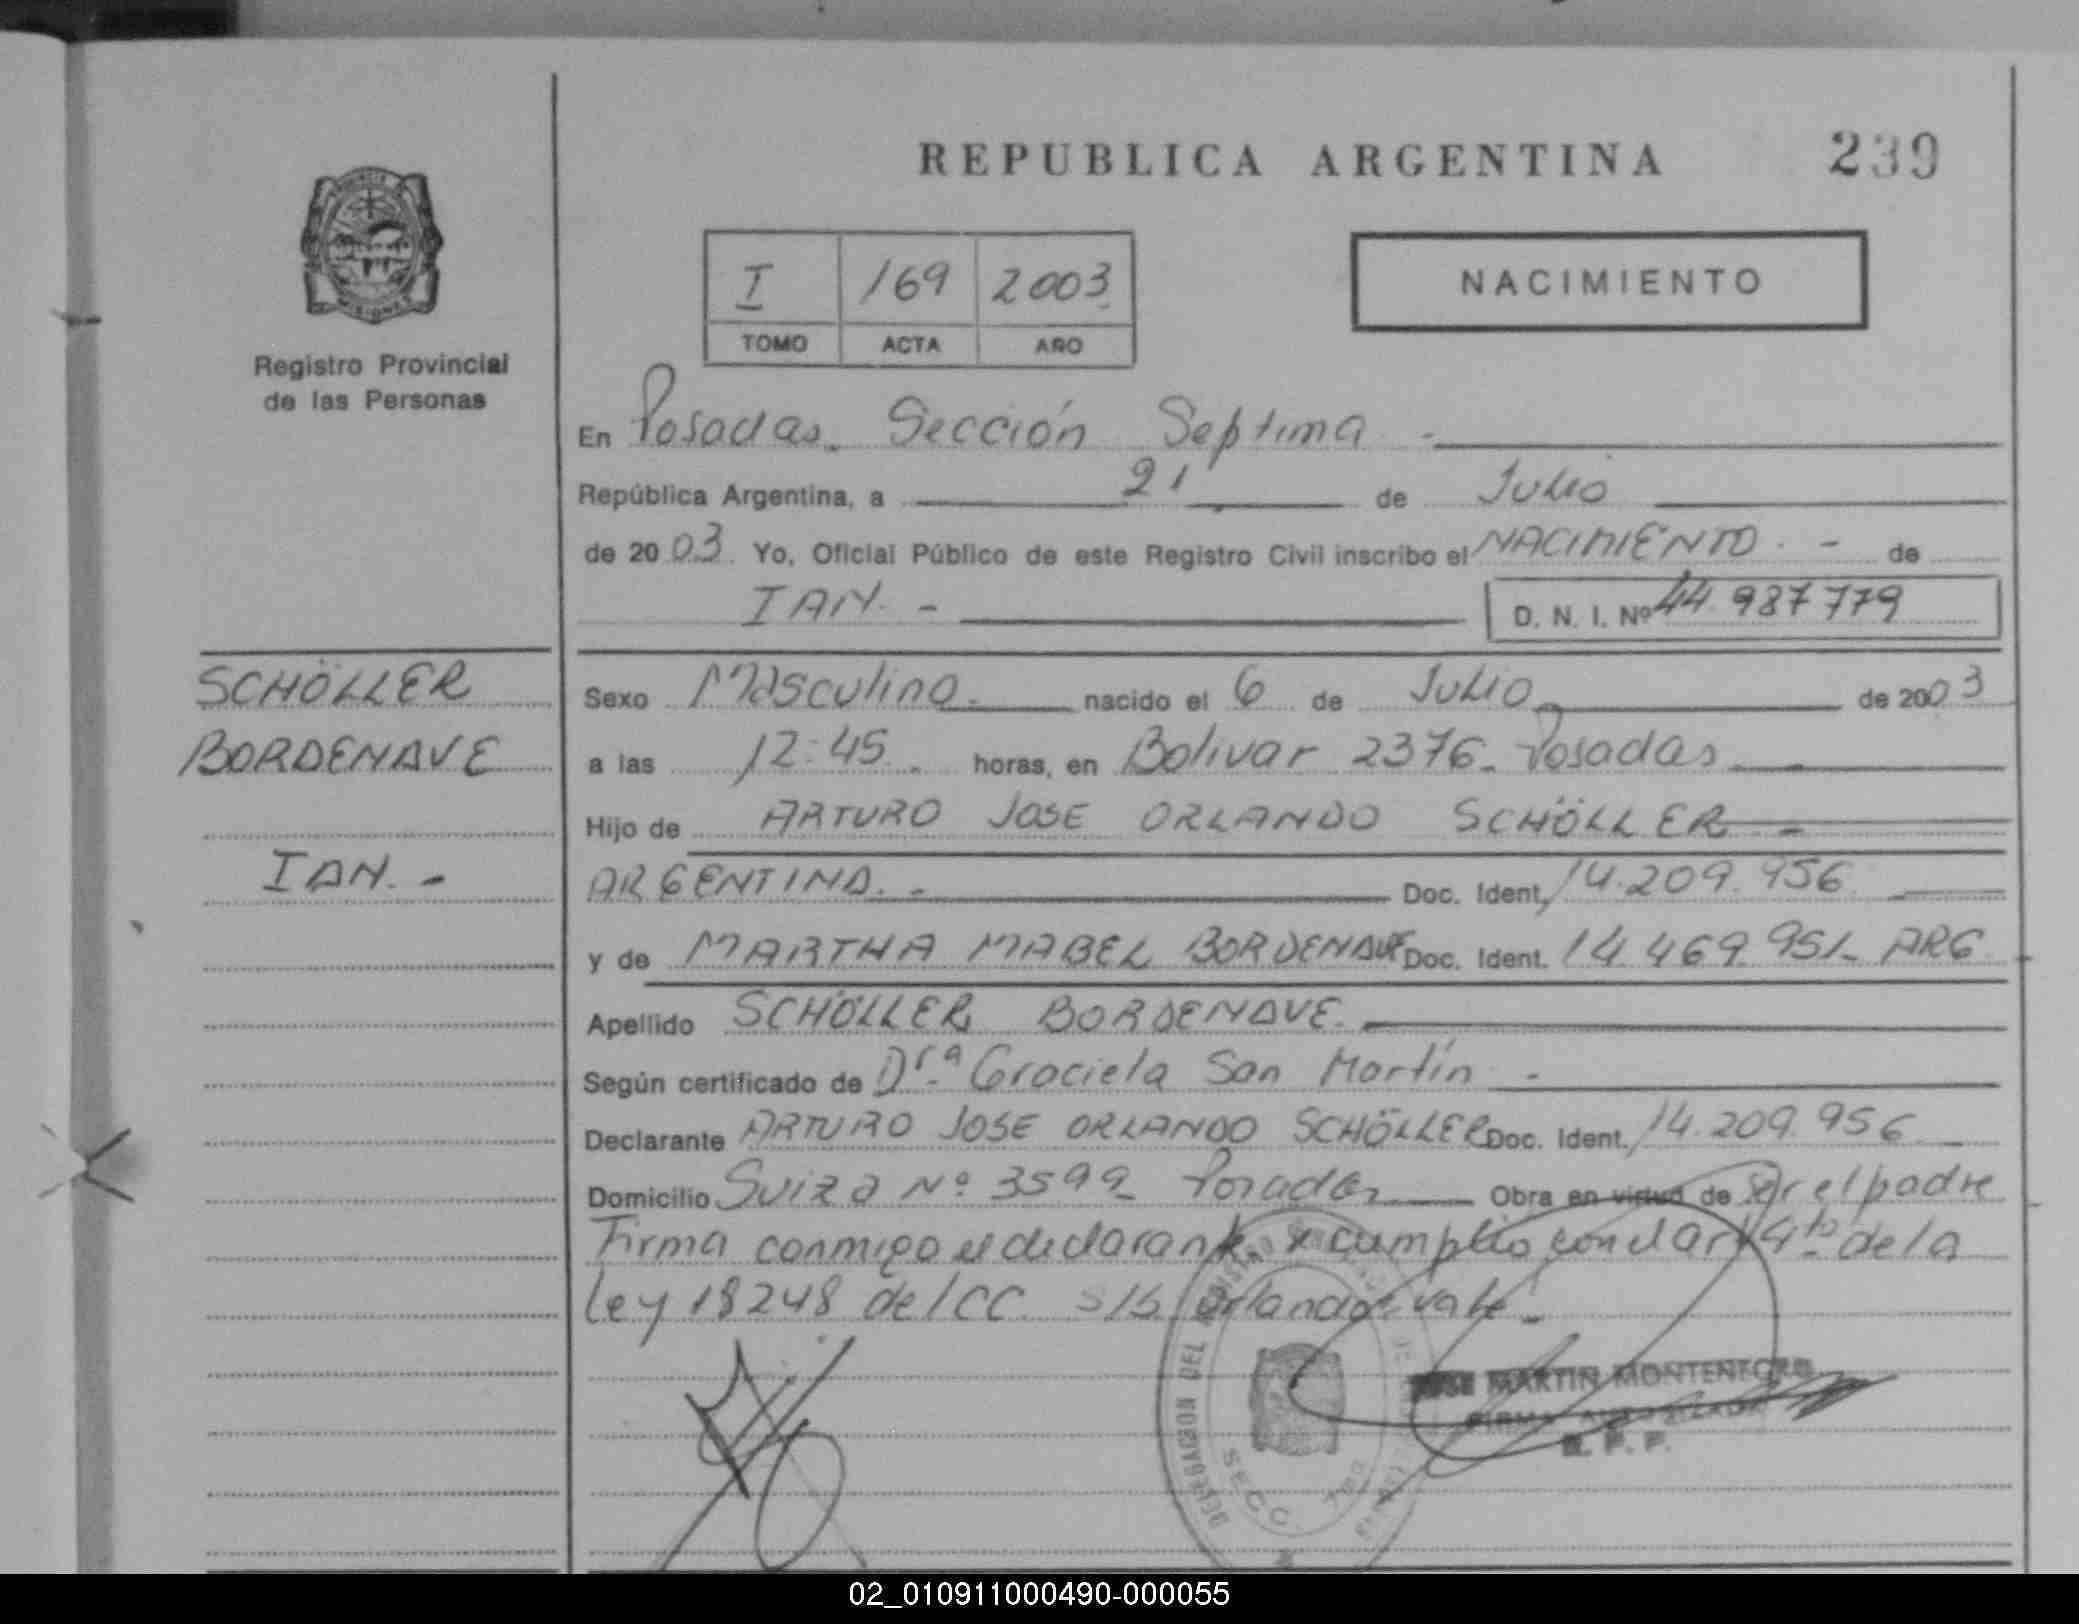 REPUBLICA ARGENTINA
239
Registro Provincial
de las Personas
I 169 2003
TOMO ACTA AÑO
NACIMIENTO
En Posadas. Sección Septima -
República Argentina, a 21 de Julio
de 2003. Yo, Oficial Público de este Registro Civil inscribo el NACIMIENTO. - de
IAN. -
D. N. I. Nº 44.987779
SCHÖLLER
BORDENAVE
IAN. -
Sexo Masculino. nacido el 6 de Julio de 2003
a las 12:45. horas, en Bolivar 2376- Posadas
Hijo de ARTURO JOSE ORLANDO SCHÖLLER -
ARGENTINA. - Doc. Ident. 14.209.956
y de MARTHA MABEL BORDENAVE Doc. Ident. 14.469.951- ARG
Apellido SCHÖLLER BORDENAVE.
Según certificado de Drª Graciela San Martín -
Declarante ARTURO JOSE ORLANDO SCHÖLLER Doc. Ident. 14.209.956
Domicilio Suiza Nº 3599- Posadas Obra en virtud de Ser el padre
Firma conmigo el declarante y cumplio con el art 4to de la
Ley 18248 del CC. S/b orlando: vale -
DELEGACION DEL REGISTRO
SECC. 7ma
JOSE MARTIN MONTENEGRO
FIRMA AUTORIZADA
R. P. P.
02_010911000490-000055